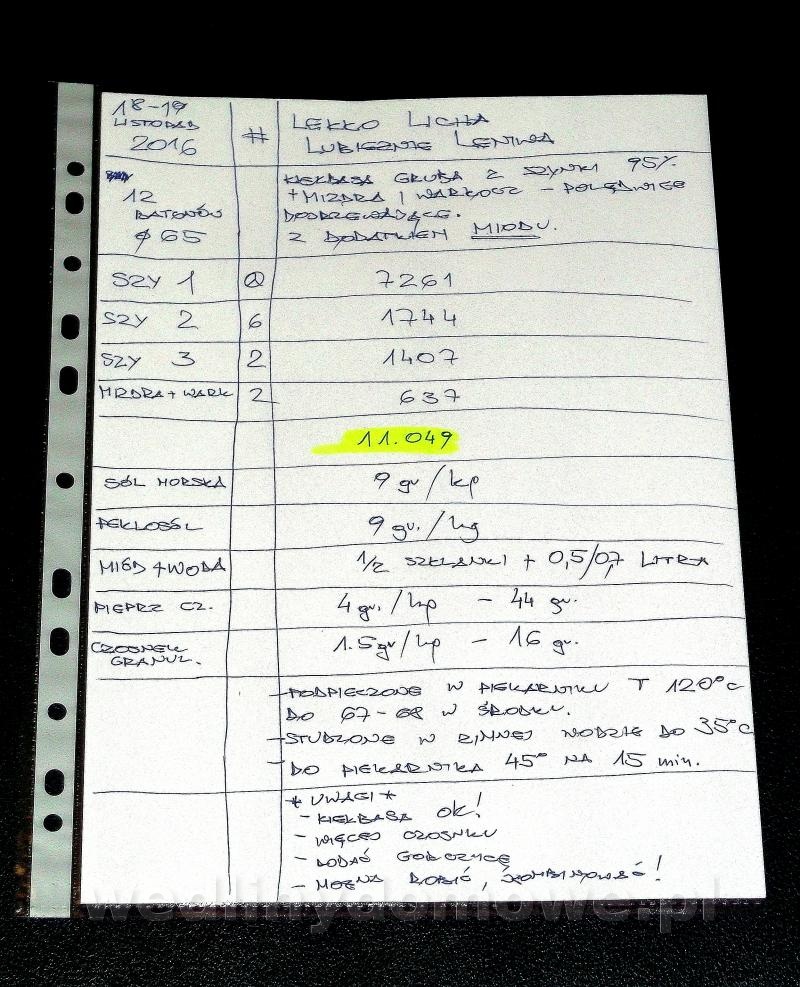 18-19
LISTOPAD
2016
#
LEKKO LICHA
LUBIEŻNIE LENIWA
12
BATONÓW
ø 65
KIEŁBASA GRUBA Z SZYNKI 95%
+ MIZDRA I WARKOCZ - POLĘDWICE
DOBRZEWĄDĄCE.
Z DODATKIEM MIODU.
SZY 1 @ 7261
SZY 2 6 1744
SZY 3 2 1407
MIZDRA + WARK 2 637
11.049
SÓL MORSKA 9 gr/kg
PEKLOSÓL 9 gr./kg
MIÓD + WODA 1/2 SZKLANKI + 0,5/0,7 LITRA
PIEPRZ CZ. 4 gr./kg - 44 gr.
CZOSNEK
GRANUL. 1.5gr/kg - 16 gr.
- PODPIECZONE W PIEKARNIKU T 120°C
DO 67-68 W ŚRODKU.
- STUDZONE W ZIMNEJ WODZIE DO 35°C
- DO PIEKARNIKA 45° NA 15 min.
* UWAGI *
- KIEŁBASA OK!
- WIĘCEJ CZOSNKU
- DODAĆ GORCZYCĘ
- MOŻNA ROBIĆ, SKOMBINOWAĆ!
wedlinydomowe.pl